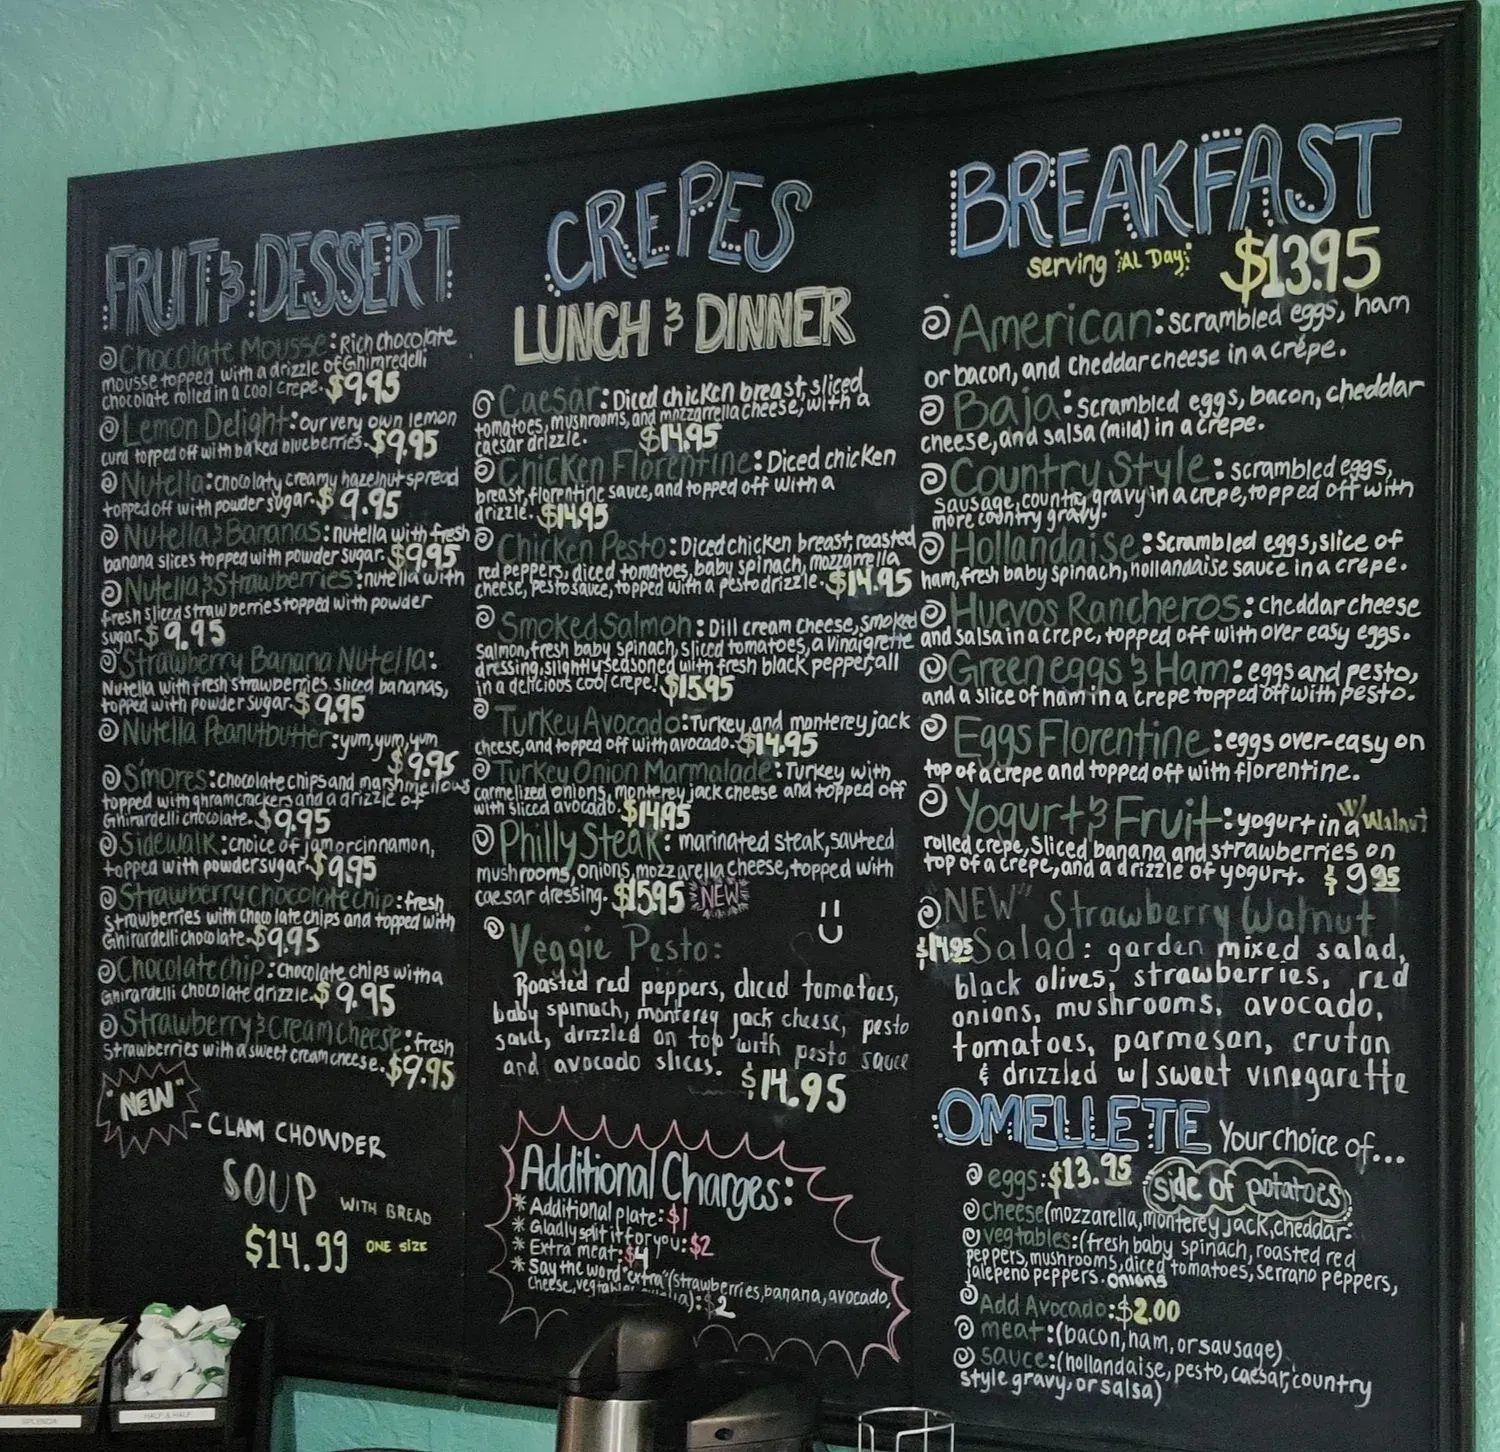 FRUIT & DESSERT
Chocolate Mousse: Rich chocolate
mousse topped with a drizzle of Ghimredelli
chocolate rolled in a cool crepe. $9.95
Lemon Delight: our very own lemon
curd topped off with baked blueberries. $9.95
Nutella: chocolaty creamy hazelnut spread
topped off with powder sugar. $9.95
Nutella & Bananas: nutella with fresh
banana slices topped with powder sugar. $9.95
Nutella & Strawberries: nutella with
fresh sliced strawberries topped with powder
sugar. $9.95
Strawberry Banana Nutella:
Nutella with fresh strawberries, sliced bananas,
topped with powder sugar. $9.95
Nutella Peanutbutter: yum, yum, yum
$9.95
S'mores: chocolate chips and marshmellows
topped with ghramcrackers and a drizzle of
Ghirardelli chocolate. $9.95
Sidewalk: choice of jam or cinnamon,
topped with powder sugar. $9.95
Strawberry chocolate chip: fresh
strawberries with chocolate chips and topped with
Ghirardelli chocolate. $9.95
Chocolate chip: chocolate chips with a
Ghirardelli chocolate drizzle. $9.95
Strawberry & Cream cheese: fresh
strawberries with a sweet cream cheese. $9.95
"NEW"
- CLAM CHOWDER
SOUP WITH BREAD
$14.99 ONE SIZE
CREPES
LUNCH & DINNER
Caesar: Diced chicken breast, sliced
tomatoes, mushrooms, and mozzarrella cheese, with a
caesar drizzle. $14.95
Chicken Florentine: Diced chicken
breast, florentine sauce, and topped off with a
drizzle. $14.95
Chicken Pesto: Diced chicken breast, roasted
red peppers, diced tomatoes, baby spinach, mozzarrella
cheese, pesto sauce, topped with a pesto drizzle. $14.95
Smoked Salmon: Dill cream cheese, smoked
salmon, fresh baby spinach, sliced tomatoes, a vinaigrette
dressing, slightly seasoned with fresh black pepper, all
in a delicious cool crepe! $15.95
Turkey Avocado: Turkey, and monterey jack
cheese, and topped off with avocado. $14.95
Turkey Onion Marmalade: Turkey with
carmelized onions, monterey jack cheese and topped off
with sliced avocado. $14.95
Philly Steak: marinated steak, sauteed
mushrooms, onions, mozzarella cheese, topped with
caesar dressing. $15.95 NEW
Veggie Pesto:
Roasted red peppers, diced tomatoes,
baby spinach, monterey jack cheese, pesto
sauce, drizzled on top with pesto sauce
and avocado slices. $14.95
Additional Charges:
* Additional plate: $1
* Gladly split it for you: $2
* Extra meat: $4
* Say the word "extra" (strawberries, banana, avocado,
cheese, : $2
BREAKFAST
serving Al Day $13.95
American: scrambled eggs, ham
or bacon, and cheddar cheese in a crêpe.
Baja: scrambled eggs, bacon, cheddar
cheese, and salsa (mild) in a crepe.
Country Style: scrambled eggs,
sausage, country gravy in a crepe, topped off with
more country gravy.
Hollandaise: Scrambled eggs, slice of
ham, fresh baby spinach, hollandaise sauce in a crepe.
Huevos Rancheros: cheddar cheese
and salsa in a crepe, topped off with over easy eggs.
Green eggs & Ham: eggs and pesto,
and a slice of ham in a crepe topped off with pesto.
Eggs Florentine: eggs over-easy on
top of a crepe and topped off with florentine.
Yogurt & Fruit: yogurt in a w/ Walnut
rolled crepe, Sliced banana and strawberries on
top of a crepe, and a drizzle of yogurt. $9.95
"NEW" Strawberry Walnut
$14.95 Salad: garden mixed salad,
black olives, strawberries, red
onions, mushrooms, avocado,
tomatoes, parmesan, cruton
& drizzled w/ sweet vinegarette
OMELLETE Your choice of...
eggs: $13.95 side of potatoes
cheese (mozzarella, monterey jack, cheddar:
vegtables: (fresh baby spinach, roasted red
peppers, mushrooms, diced tomatoes, serrano peppers,
jalepeno peppers. onions
Add Avocado: $2.00
meat: (bacon, ham, or sausage)
sauce: (hollandaise, pesto, caesar, country
style gravy, or salsa)
SPLENDA
HALF & HALF